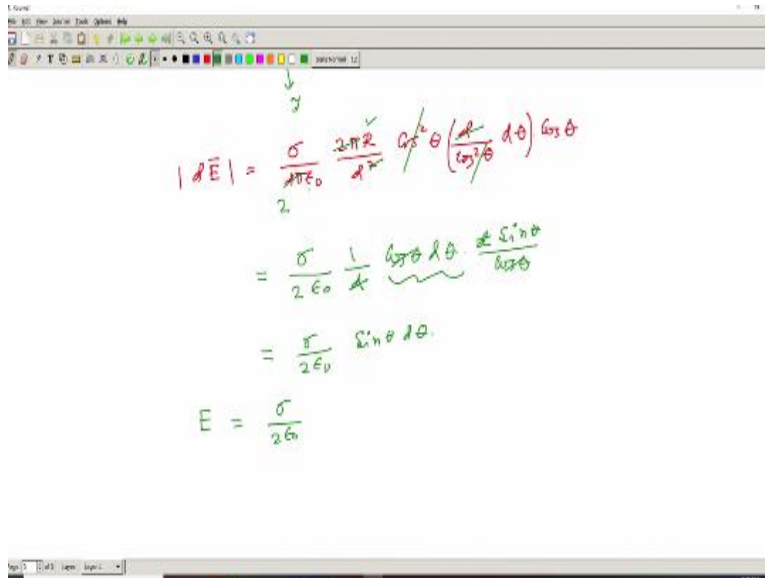 File Edit View Journal Tools Options Help
y
|dĒ| = σ/4πε₀ 2πR/d² cos²θ (d/cos²θ dθ) cos θ
2
= σ/2ε₀ 1/d cosθ dθ · d sinθ/cosθ
= σ/2ε₀ sinθ dθ.
E = σ/2ε₀
Layer Layer 1